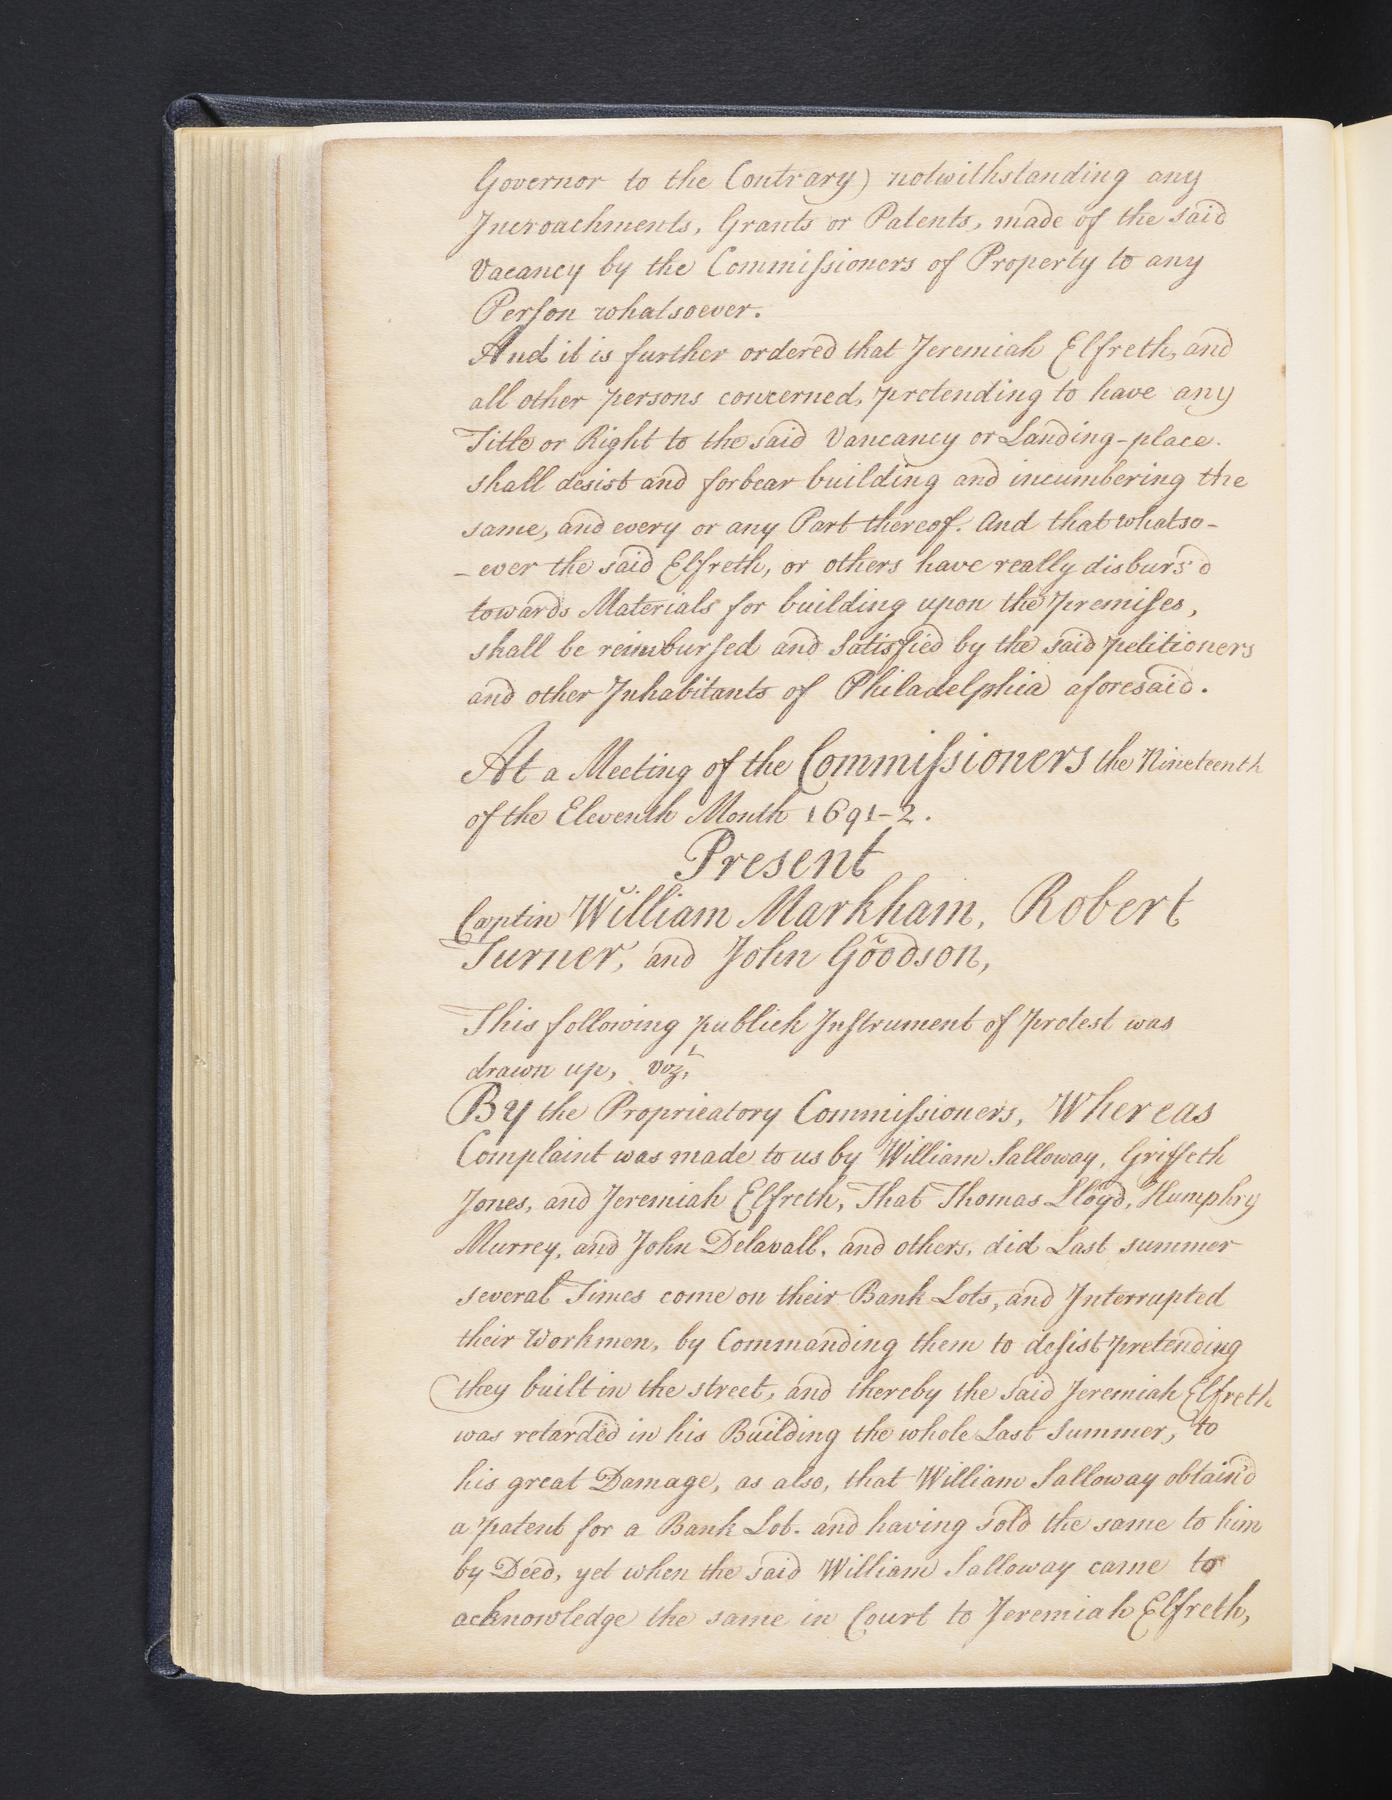 Governor to the Contrary) notwithstanding any
Incroachments, Grants or Patents, made of the said
Vacancy by the Commiſsioners of Property to any
Perſon whatsoever.
And it is further ordered that Jeremiah Elfreth, and
all other persons concerned, pretending to have any
Title or Right to the said Vancancy or Landing-place.
shall desist and forbear building and incumbering the
same, and every or any Part thereof. And that whatso-
-ever the said Elfreth, or others have really disburs'd
towards Materials for building upon the Premiſes,
shall be reimburſed and Satisfied by the said petitioners
and other Inhabitants of Philadelphia aforesaid.
At a Meeting of the Commiſsioners the Nineteenth
of the Eleventh Month 1691-2.
Present
Captin William Markham, Robert
Turner, and John Goodson,
This following publick Inſtrument of Protest was
drawn up, vizt,
By the Proprieatory Commiſsioners, Whereas
Complaint was made to us by William Salloway, Griffeth
Jones, and Jeremiah Elfreth, That Thomas Lloyd, Humphry
Murrey, and John Delavall, and others, did Last summer
several Times come on their Bank Lots, and Interrupted
their Workmen, by Commanding them to deſist pretending
they built in the street, and thereby the said Jeremiah Elfreth
was retarded in his Building the whole Last Summer, to
his great Damage, as also, that William Salloway obtain'd
a Patent for a Bank Lot. and having sold the same to him
by Deed, yet when the said William Salloway came to
acknowledge the same in Court to Jeremiah Elfreth,